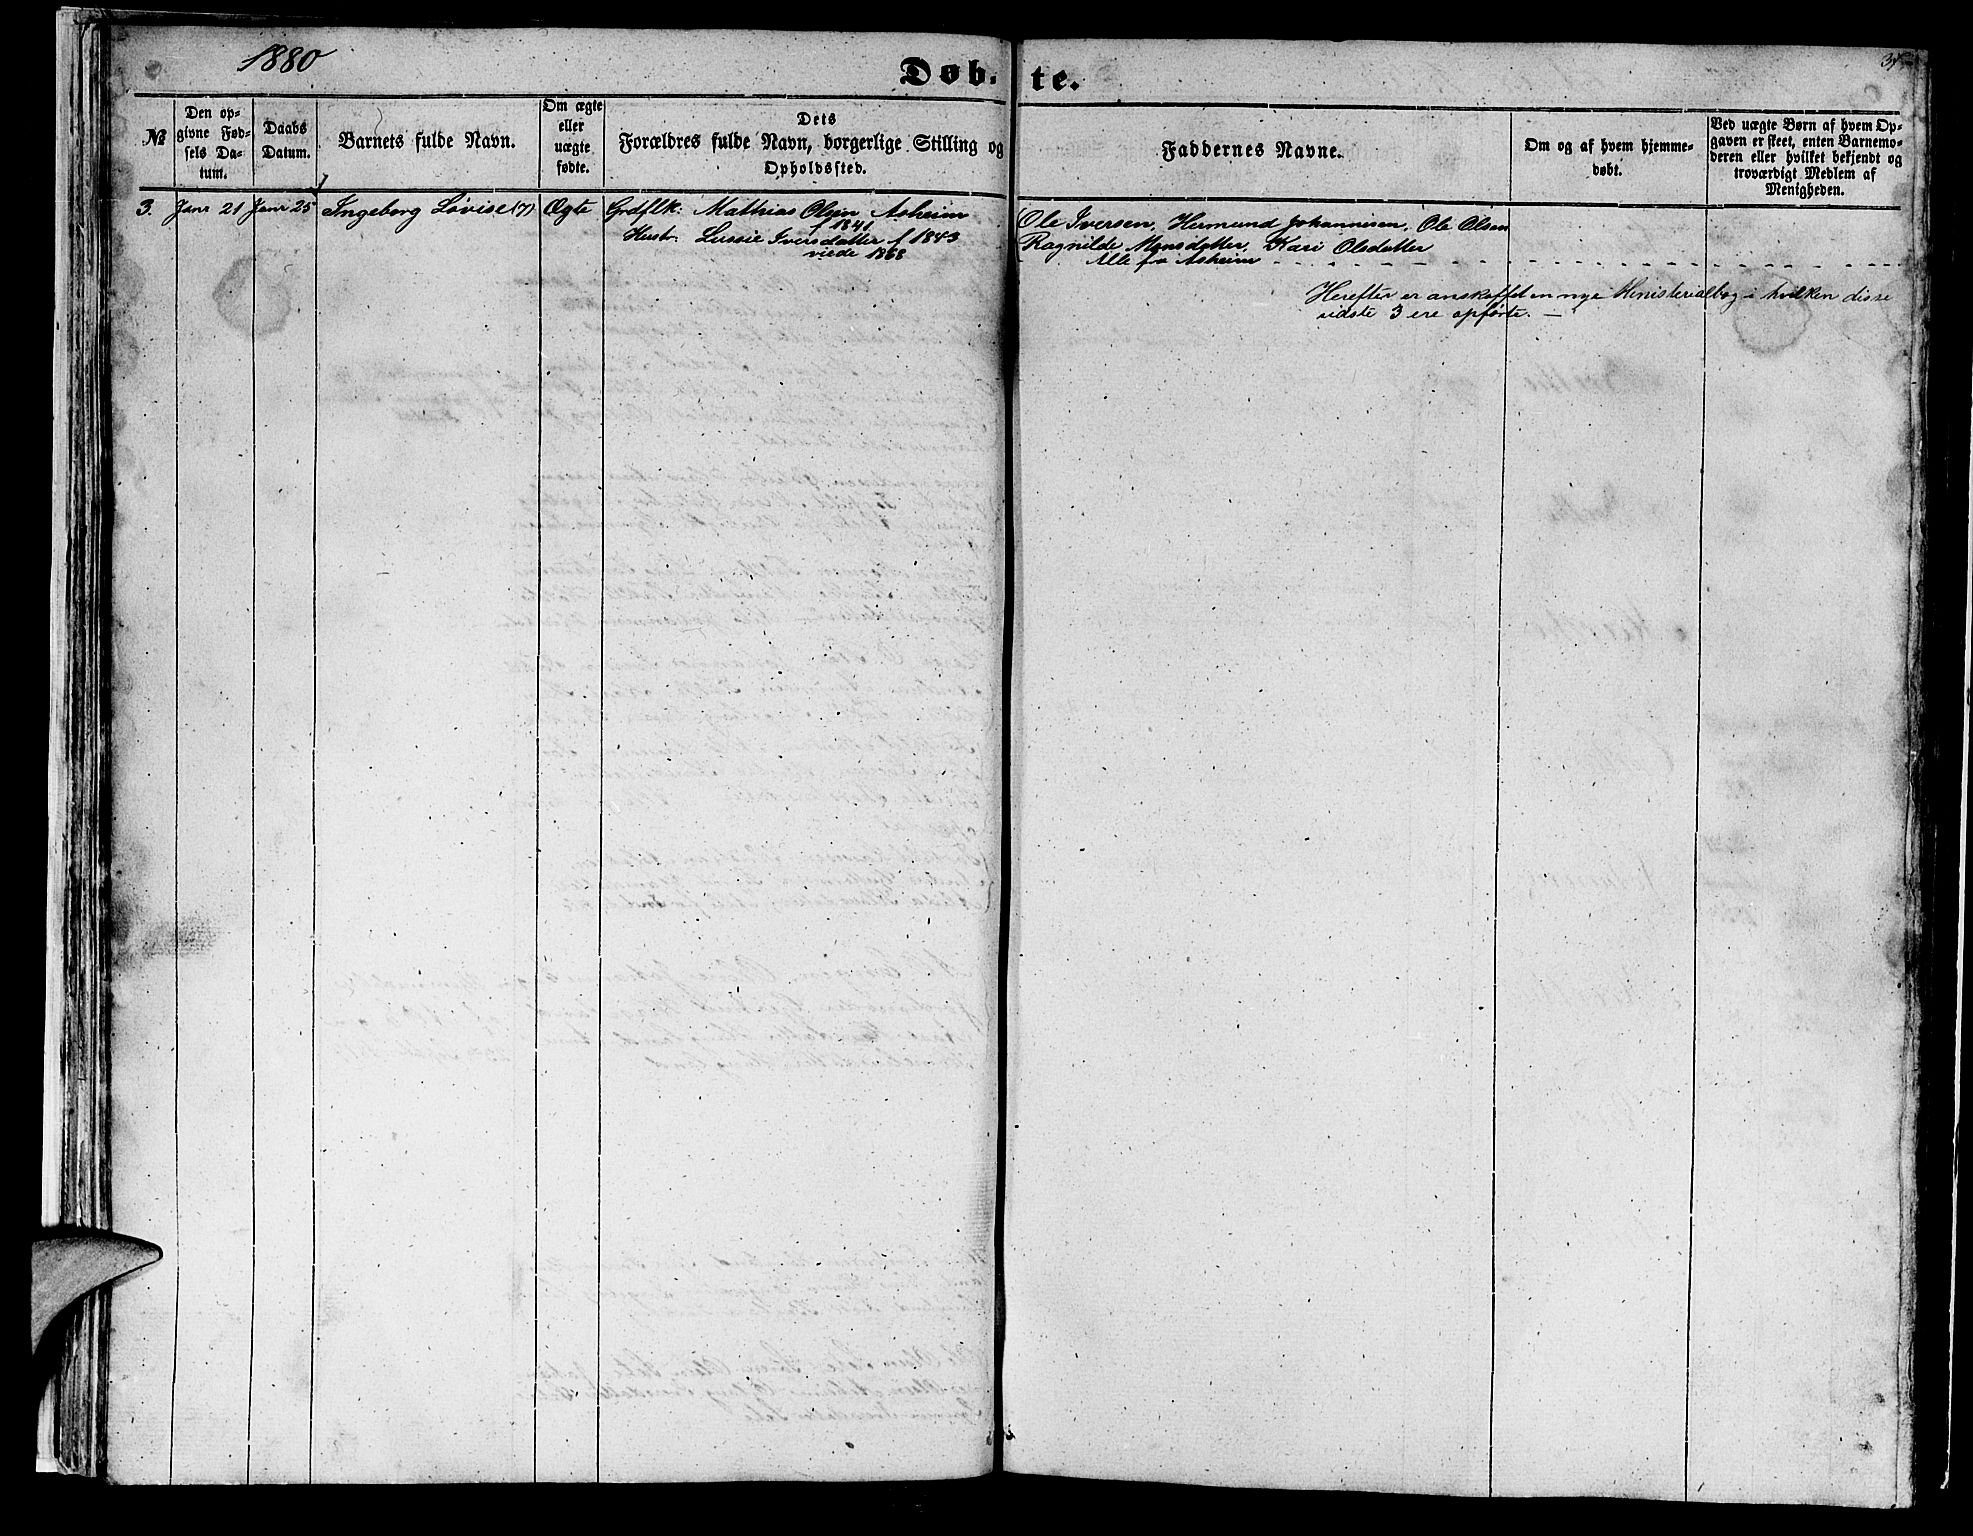 1880
Døb. te.
№
Den op-
givne Fød-
sels Da-
tum.
Daabs
Datum.
Barnets fulde Navn.
Om ægte
eller
uægte
fødte.
Dets
Forældres fulde Navn, borgerlige Stilling og
Opholdssted.
Faddernes Navne.
Om og af hvem hjemme-
døbt.
Ved uægte Børn af hvem Op-
gaven er skeet, enten Barnemo-
deren eller hvilket bekjendt og
troværdigt Medlem af
Menigheden.
3. Janr 21 Janr 25 Ingeborg Lovise (7) Ægte Grdflk: Mathias Olsen Asheim
f 1841
Hustr. Lussie Iversdatter f 1843
viede 1868
Ole Iversen, Hermund Johannesen, Ole Olsen
Ragnilde Monsdatter, Kari Olsdatter
Alle fra Asheim
Herefter er anskaffet en nye Ministerialbog i hvilken disse
sidste 3 ere opførte. —